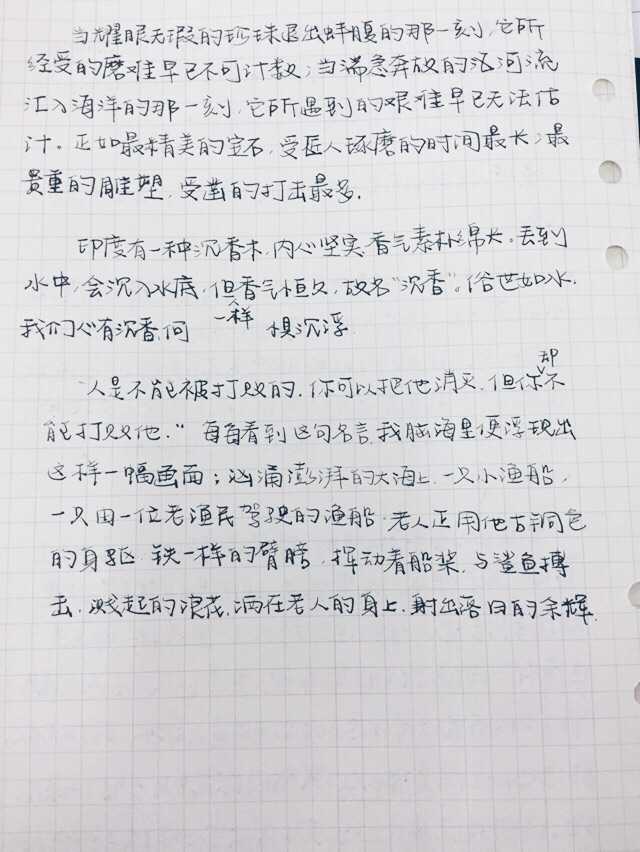 当耀眼无瑕的珍珠退出蚌腹的那一刻,它所
经受的磨难早已不可计数;当湍急奔放的江河流
汇入海洋的那一刻,它所遇到的艰难早已无法估
计。正如最精美的宝石,受匠人琢磨的时间最长;最
贵重的雕塑,受凿的打击最多.
印度有一种沉香木,内心坚实,香气素朴绵长。丢到
水中,会沉入水底,但香气恒久,故名“沉香”。俗世如水.
我们心有沉香,何一样惧沉浮
“人是不能被打败的.你可以把他消灭.但你却不
能打败他.”每每看到这句名言,我脑海里便浮现出
这样一幅画面;汹涌澎湃的大海上.一只小渔船,
一只由一位老渔民驾驶的渔船.老人正用他古铜色
的身躯.铁一样的臂膀.挥动着船桨,与鲨鱼搏
击.溅起的浪花,洒在老人的身上.射出落日的余辉.